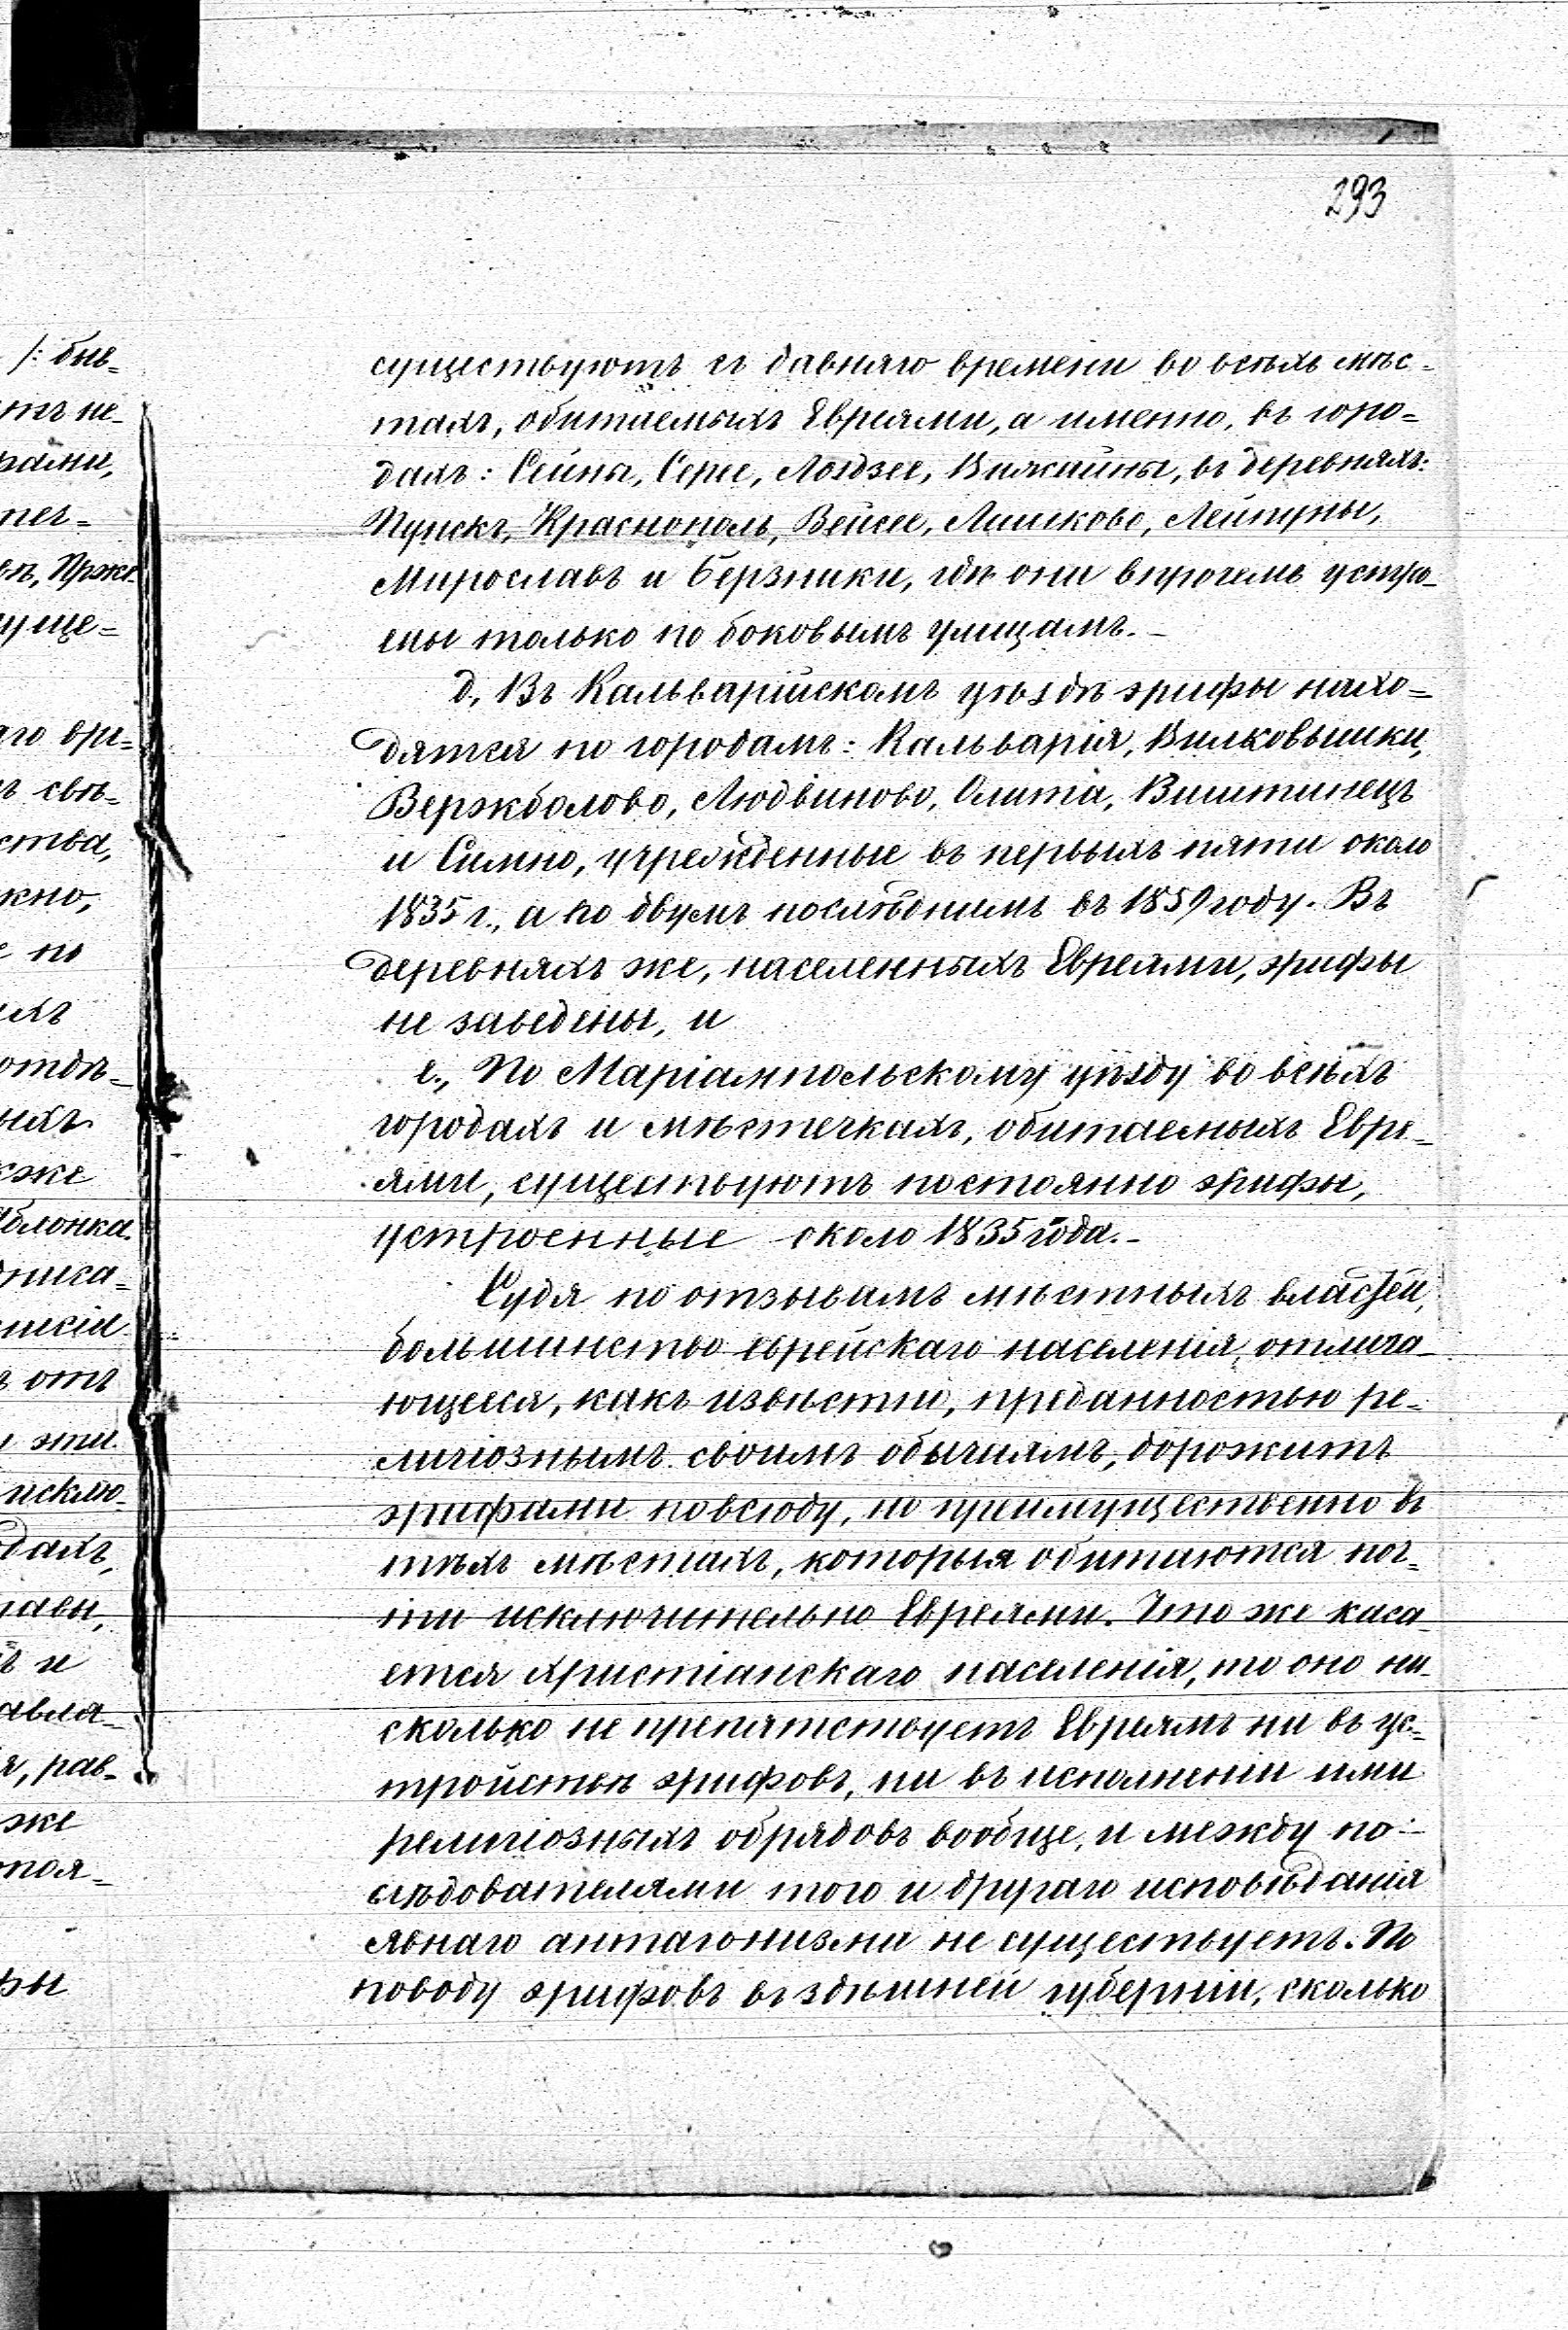 293
/: быв-
существуютъ съ давняго времени во всѣхъ мѣс-
тахъ, обитаемыхъ Евреями, а именно, въ горо-
дахъ: Сейны, Сереe, Лоздзее, Вижайны, въ деревняхъ:
Пунскъ, Краснополь, Вейсее, Лишково, Лейпуны,
Мирославъ и Берзники, гдѣ они впрочемъ устро-
ены только по боковымъ улицамъ.-
д, Въ Кальварійскомъ уѣздѣ эрифы нахо-
дятся по городамъ: Кальварія, Вилковышки,
Вержболово, Людвиново, Олита, Виштинецъ
и Симно, учрежденные въ первыхъ пяти около
1835 г., а по двумъ послѣднимъ въ 1859 году. Въ
деревняхъ же, населенныхъ Евреями, эрифы
не заведены, и
е., По Маріампольскому уѣзду во всѣхъ
городахъ и мѣстечкахъ, обитаемыхъ Евре-
ями, существуютъ постоянно эрифы,
устроенные около 1835 года.-
Судя по отзывамъ мѣстныхъ властей,
большинство еврейскаго населенія, отлича-
ющееся, какъ извѣстно, преданностью ре-
лигіознымъ своимъ обычаямъ, дорожитъ
эрифами повсюду, но преимущественно въ
тѣхъ мѣстахъ, которыя обитаются поч-
ти исключительно Евреями. Что же каса-
ется христіанскаго населенія, то оно ни-
сколько не препятствуетъ Евреямъ ни въ ус-
тройствѣ эрифовъ, ни въ исполненіи ими
религіозныхъ обрядовъ вообще, и между по-
слѣдователями того и другаго исповѣданія
явнаго антагонизма не существуетъ. По
поводу эрифовъ въ здѣшней губерніи, сколько